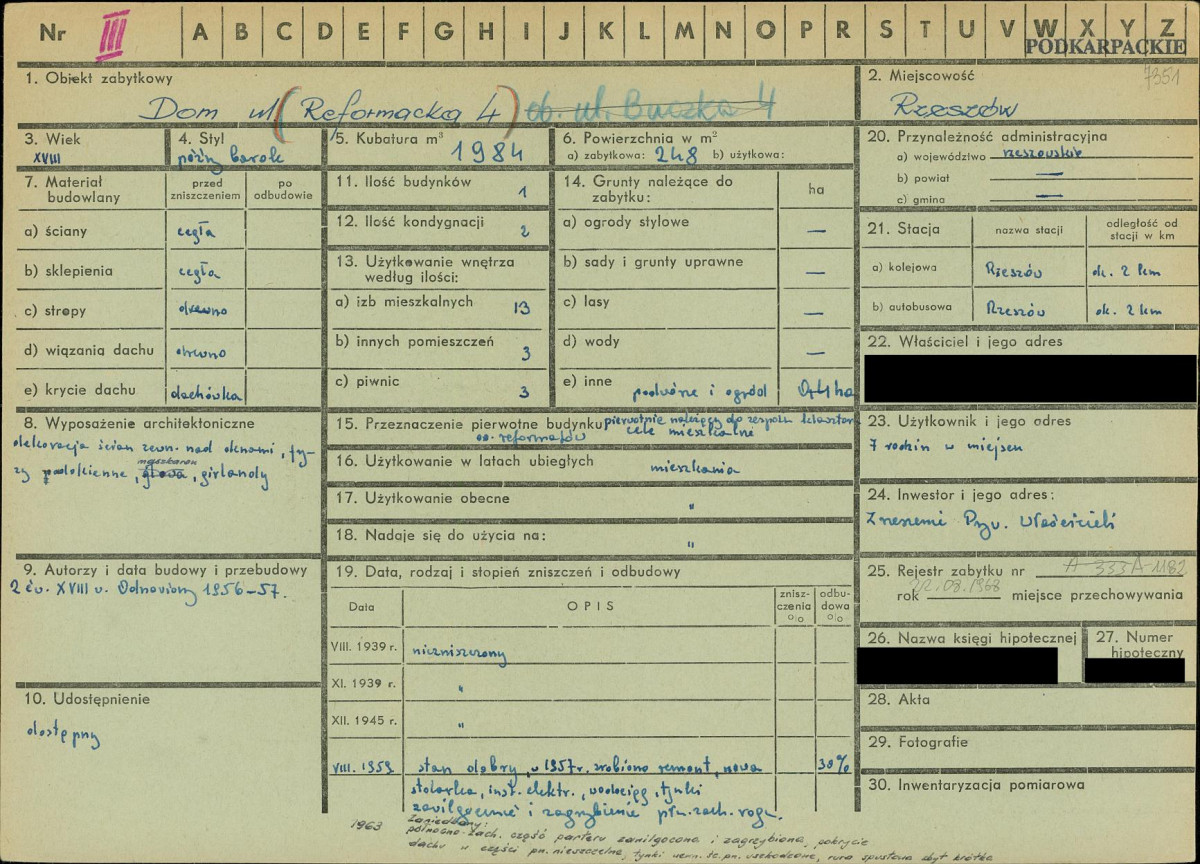 Nr III A B C D E F G H I J K L M N O P R S T U V W X Y Z
PODKARPACKIE
7351
1. Obiekt zabytkowy
Dom ul (Reformacka 4) ob. ul. Buczka 4
2. Miejscowość
Rzeszów
3. Wiek
XVIII
4. Styl
późny barok
5. Kubatura m³ 1984
6. Powierzchnia w m²
a) zabytkowa: 248 b) użytkowa:
20. Przynależność administracyjna
a) województwo rzeszowskie
b) powiat —
c) gmina —
7. Materiał budowlany
przed zniszczeniem
po odbudowie
a) ściany cegła
b) sklepienia cegła
c) stropy drewno
d) wiązania dachu drewno
e) krycie dachu dachówka
11. Ilość budynków 1
12. Ilość kondygnacji 2
13. Użytkowanie wnętrza
według ilości:
a) izb mieszkalnych 13
b) innych pomieszczeń 3
c) piwnic 3
14. Grunty należące do
zabytku:
ha
a) ogrody stylowe —
b) sady i grunty uprawne —
c) lasy —
d) wody —
e) inne podwórze i ogród
21. Stacja
nazwa stacji
odległość od
stacji w km
a) kolejowa Rzeszów ok. 2 km
b) autobusowa Rzeszów ok. 2 km
22. Właściciel i jego adres
8. Wyposażenie architektoniczne
dekoracja ścian zewn. nad oknami, fry-
zy podokienne, maszkaron, girlandy
15. Przeznaczenie pierwotne budynku pierwotnie należący do zespołu klasztoru
oo. reformatów cele mieszkalne
16. Użytkowanie w latach ubiegłych mieszkania
17. Użytkowanie obecne "
18. Nadaje się do użycia na: "
23. Użytkownik i jego adres
7 rodzin w miejscu
24. Inwestor i jego adres:
Zrzeszenie Pryw. Właścicieli
9. Autorzy i data budowy i przebudowy
2 ćw. XVIII w. Odnowiony 1956–57.
10. Udostępnienie
dostępny
19. Data, rodzaj i stopień zniszczeń i odbudowy
Data
OPIS
znisz-
czenia
%
odbu-
dowa
%
VIII. 1939 r. niezniszczony
XI. 1939 r. "
XII. 1945 r. "
VIII. 1959 stan dobry, w 1957r. zrobiono remont, nowa 30%
stolarka, inst. elektr., wodociąg, tynki
zawilgocenie i zagrzybienie płn. zach. rogu.
1963 Zaniedbany:
północno-zach. część parteru zawilgocona i zagrzybiona, pokrycie
dachu w części pn. nieszczelne, tynki zewn. śc. pn. uszkodzone, rura spustowa zbyt krótka
25. Rejestr zabytku nr A 333 A-1182
rok 22.08.1968 miejsce przechowywania
26. Nazwa księgi hipotecznej
27. Numer
hipoteczny
28. Akta
29. Fotografie
30. Inwentaryzacja pomiarowa